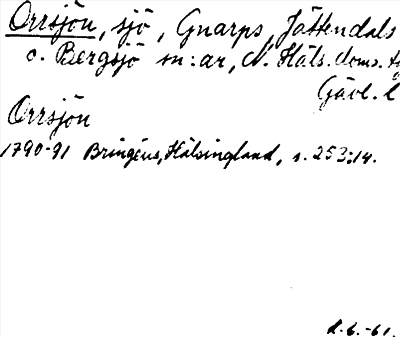 Orrsjön, sjö, Gnarps, Jättendals
o. Bergsjö sn:ar, N. Häls. doms.
Gävl. l
Orrsjön
1790-91 Bringéus, Hälsingland, s. 253:14.
d. 6. -61.